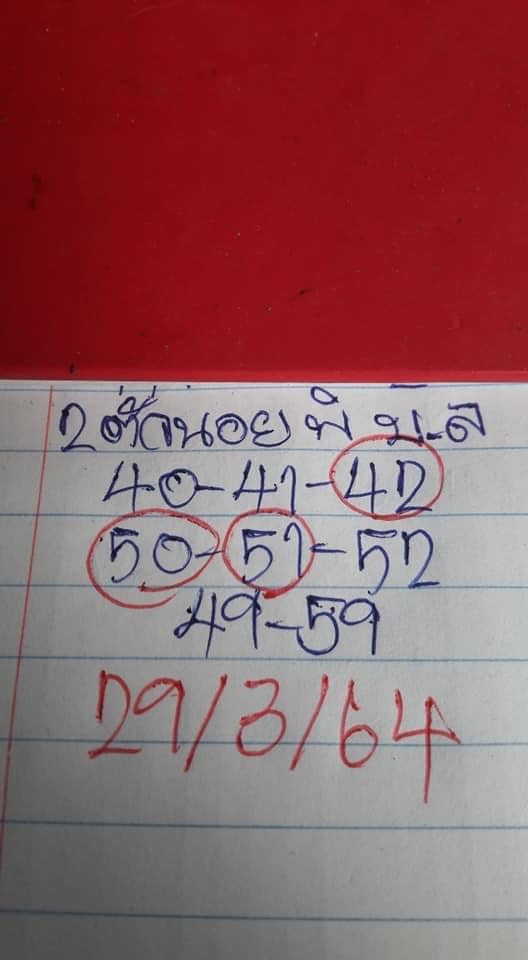 2 ตัวนอย พิ บ.ล
40-41-42
50-51-52
49-59
29/3/64